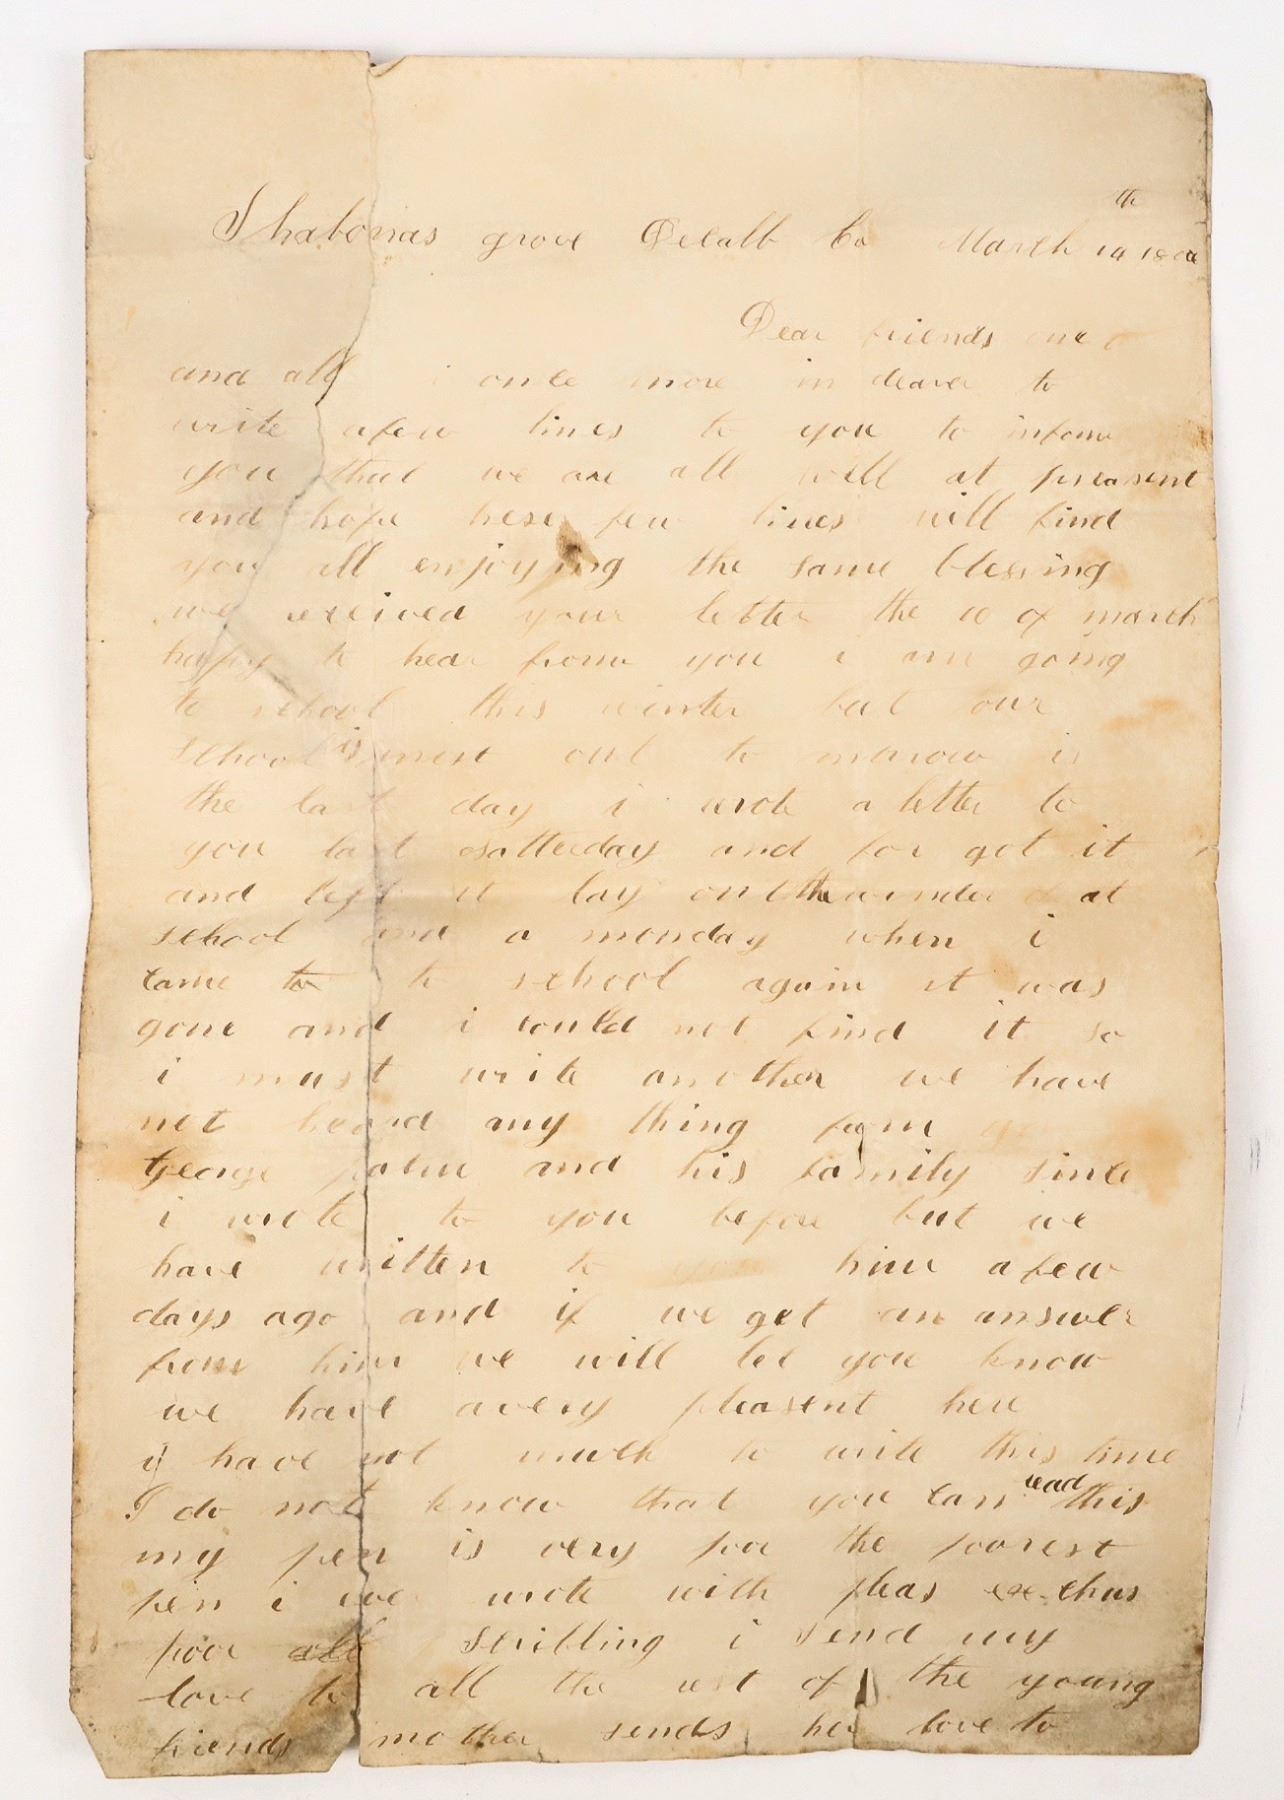 Shabonas grove Decalb Co March 14th
Dear friends one
and all i once more in deaver to
write afew lines to you to inform
you that we are all well at preasent
and hope these few lines will find
you all enjoying the same blessing
we received your letter the 10 of march
happy to hear from you i am going
to school this winter but our
school is most out to morrow is
the last day i wrote a letter to
you last satterday and for got it
and left it lay on the winder at
school and a monday when i
came to to school again it was
gone and i could not find it so
i must write another we have
not heard any thing from
George and his family since
i wrote to you before but we
have written to you him afew
days ago and if we get an answer
from him we will let you know
we have avery pleasent here
i have not much to write this time
I do not know that you can read this
my pen is very poor the poorest
pen i ever wrote with pleas ex-chus
poor all scribling i send my
love to all the rest of the young
friends mother sends her love to